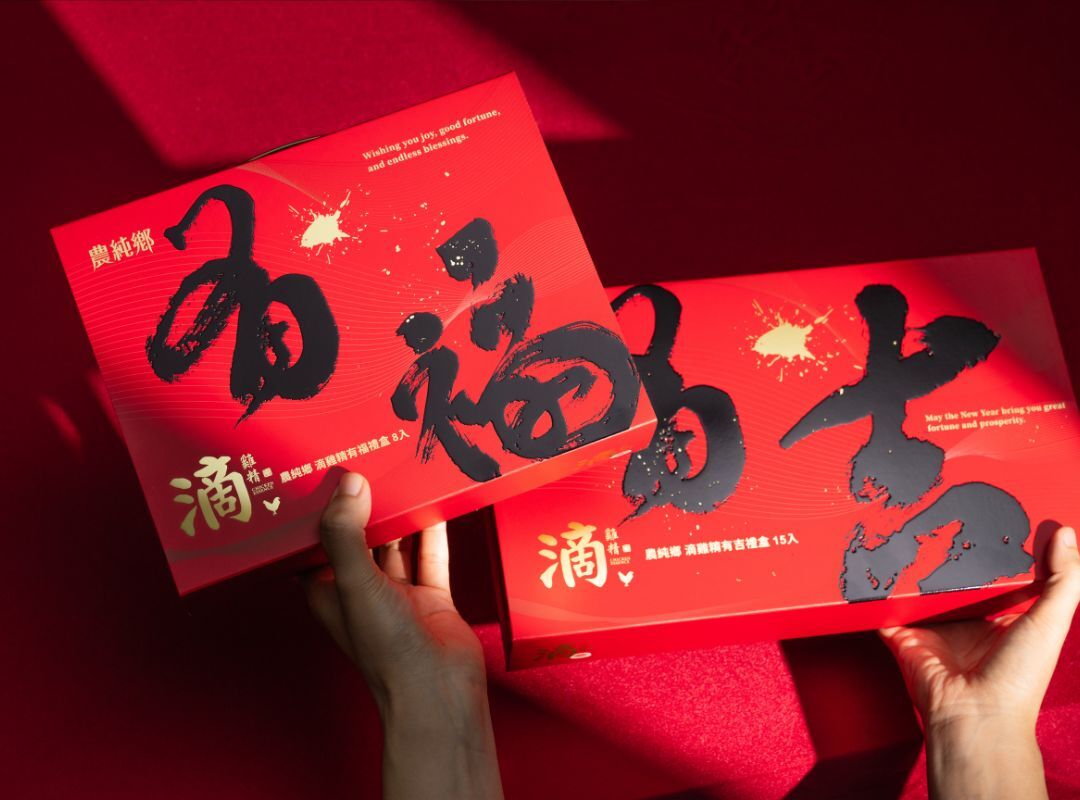 Wishing you joy, good fortune,
and endless blessings.
農純鄉
有福
滴
雞精
CHICKEN
ESSENCE
農純鄉 滴雞精有福禮盒 8入
有吉
May the New Year bring you great
fortune and prosperity.
滴
雞精
CHICKEN
ESSENCE
農純鄉 滴雞精有吉禮盒 15入